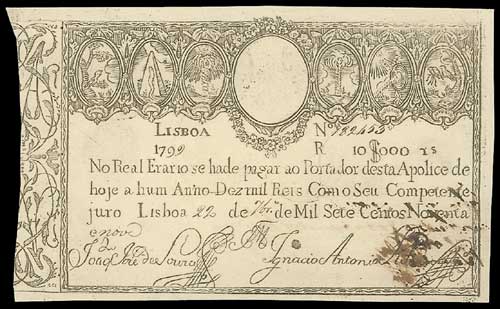 LISBOA
1799
Nº
R 10$000 rs
No Real Erario se hade pagar ao Portador desta Apolice de
hoje a hum Anno Dez mil Reis Com o Seu Competente
juro Lisboa 22 de 7br. de Mil Sete Centos Noventa
e nove
Ignacio Antonio